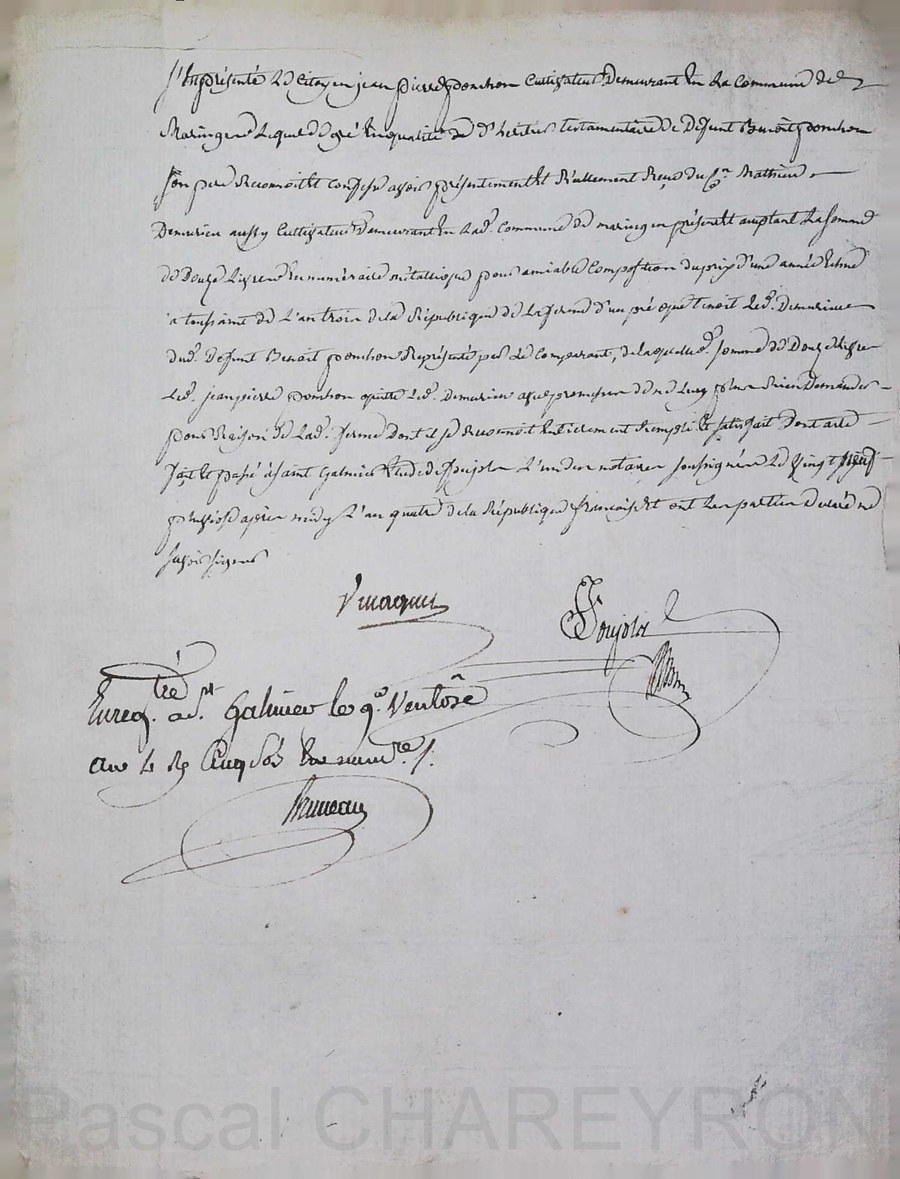 S'est présenté Le Citoyen jean pierre ponchon Cultivateur Demeurant En La Commune de
Maringes Lequel De gré En qualité de d'héritier testamentaire De Defunt Benoit ponchon
Son pere Reconnoit Et Confesse avoir présentement Et Réellement Reçu du Cen. Mathieu
Demurieu aussy Cultivateur Demeurant En Lade. Commune De maringes présent Et acceptant La Somme
De Douze Livres En numéraire métallique pour amiable Composition du prix d'une année Echue
a toussaint de L'an trois de la République de La ferme d'un pré que tenoit Led. Demurieu
dud. Defunt Benoit ponchon Représenté par Le Comparant, de laquelle d. Somme De Douze Livres
Led. jean pierre ponchon quitte Led. Demurieu avec promesse de ne Luy plus Rien Demander
pour Raison de Lad. ferme Dont il se Reconnoit Entierement Rempli Et satisfait Dont acte
fait Et passé à Saint Galmier Etude de Poujola L'un des notaires soussignés Le Vingt neuf
pluviose après midy L'an quatre de la République française Et ont Les parties Declaré ne
savoir signer
Vmagnin
Poujola
Enregtré. a St. Galmier le 9e Ventôse
an 4 Rç Cinq sols En numre.
Bruneau
Pascal CHAREYRON